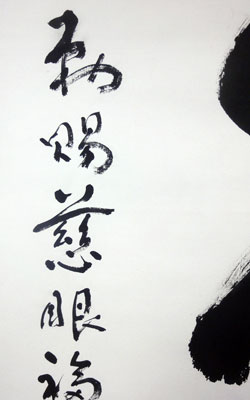 勅賜慈眼福